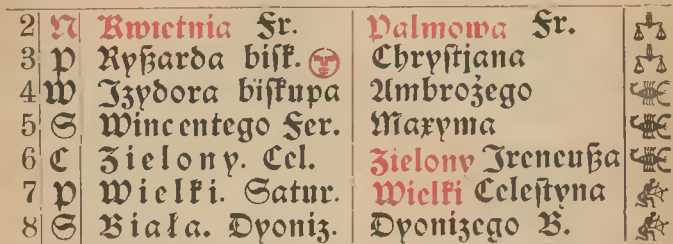 2 N Kwietnia Fr. Palmowa Fr.
3 P Ryßarda biſk. Chryſtjana
4 W Izydora biſkupa Ambrożego
5 S Wincentego Fer. Maxyma
6 C Zielony. Cel. Zielony Ireneußa
7 P Wielki. Satur. Wielki Celeſtyna
8 S Biała. Dyoniz. Dyonizego B.